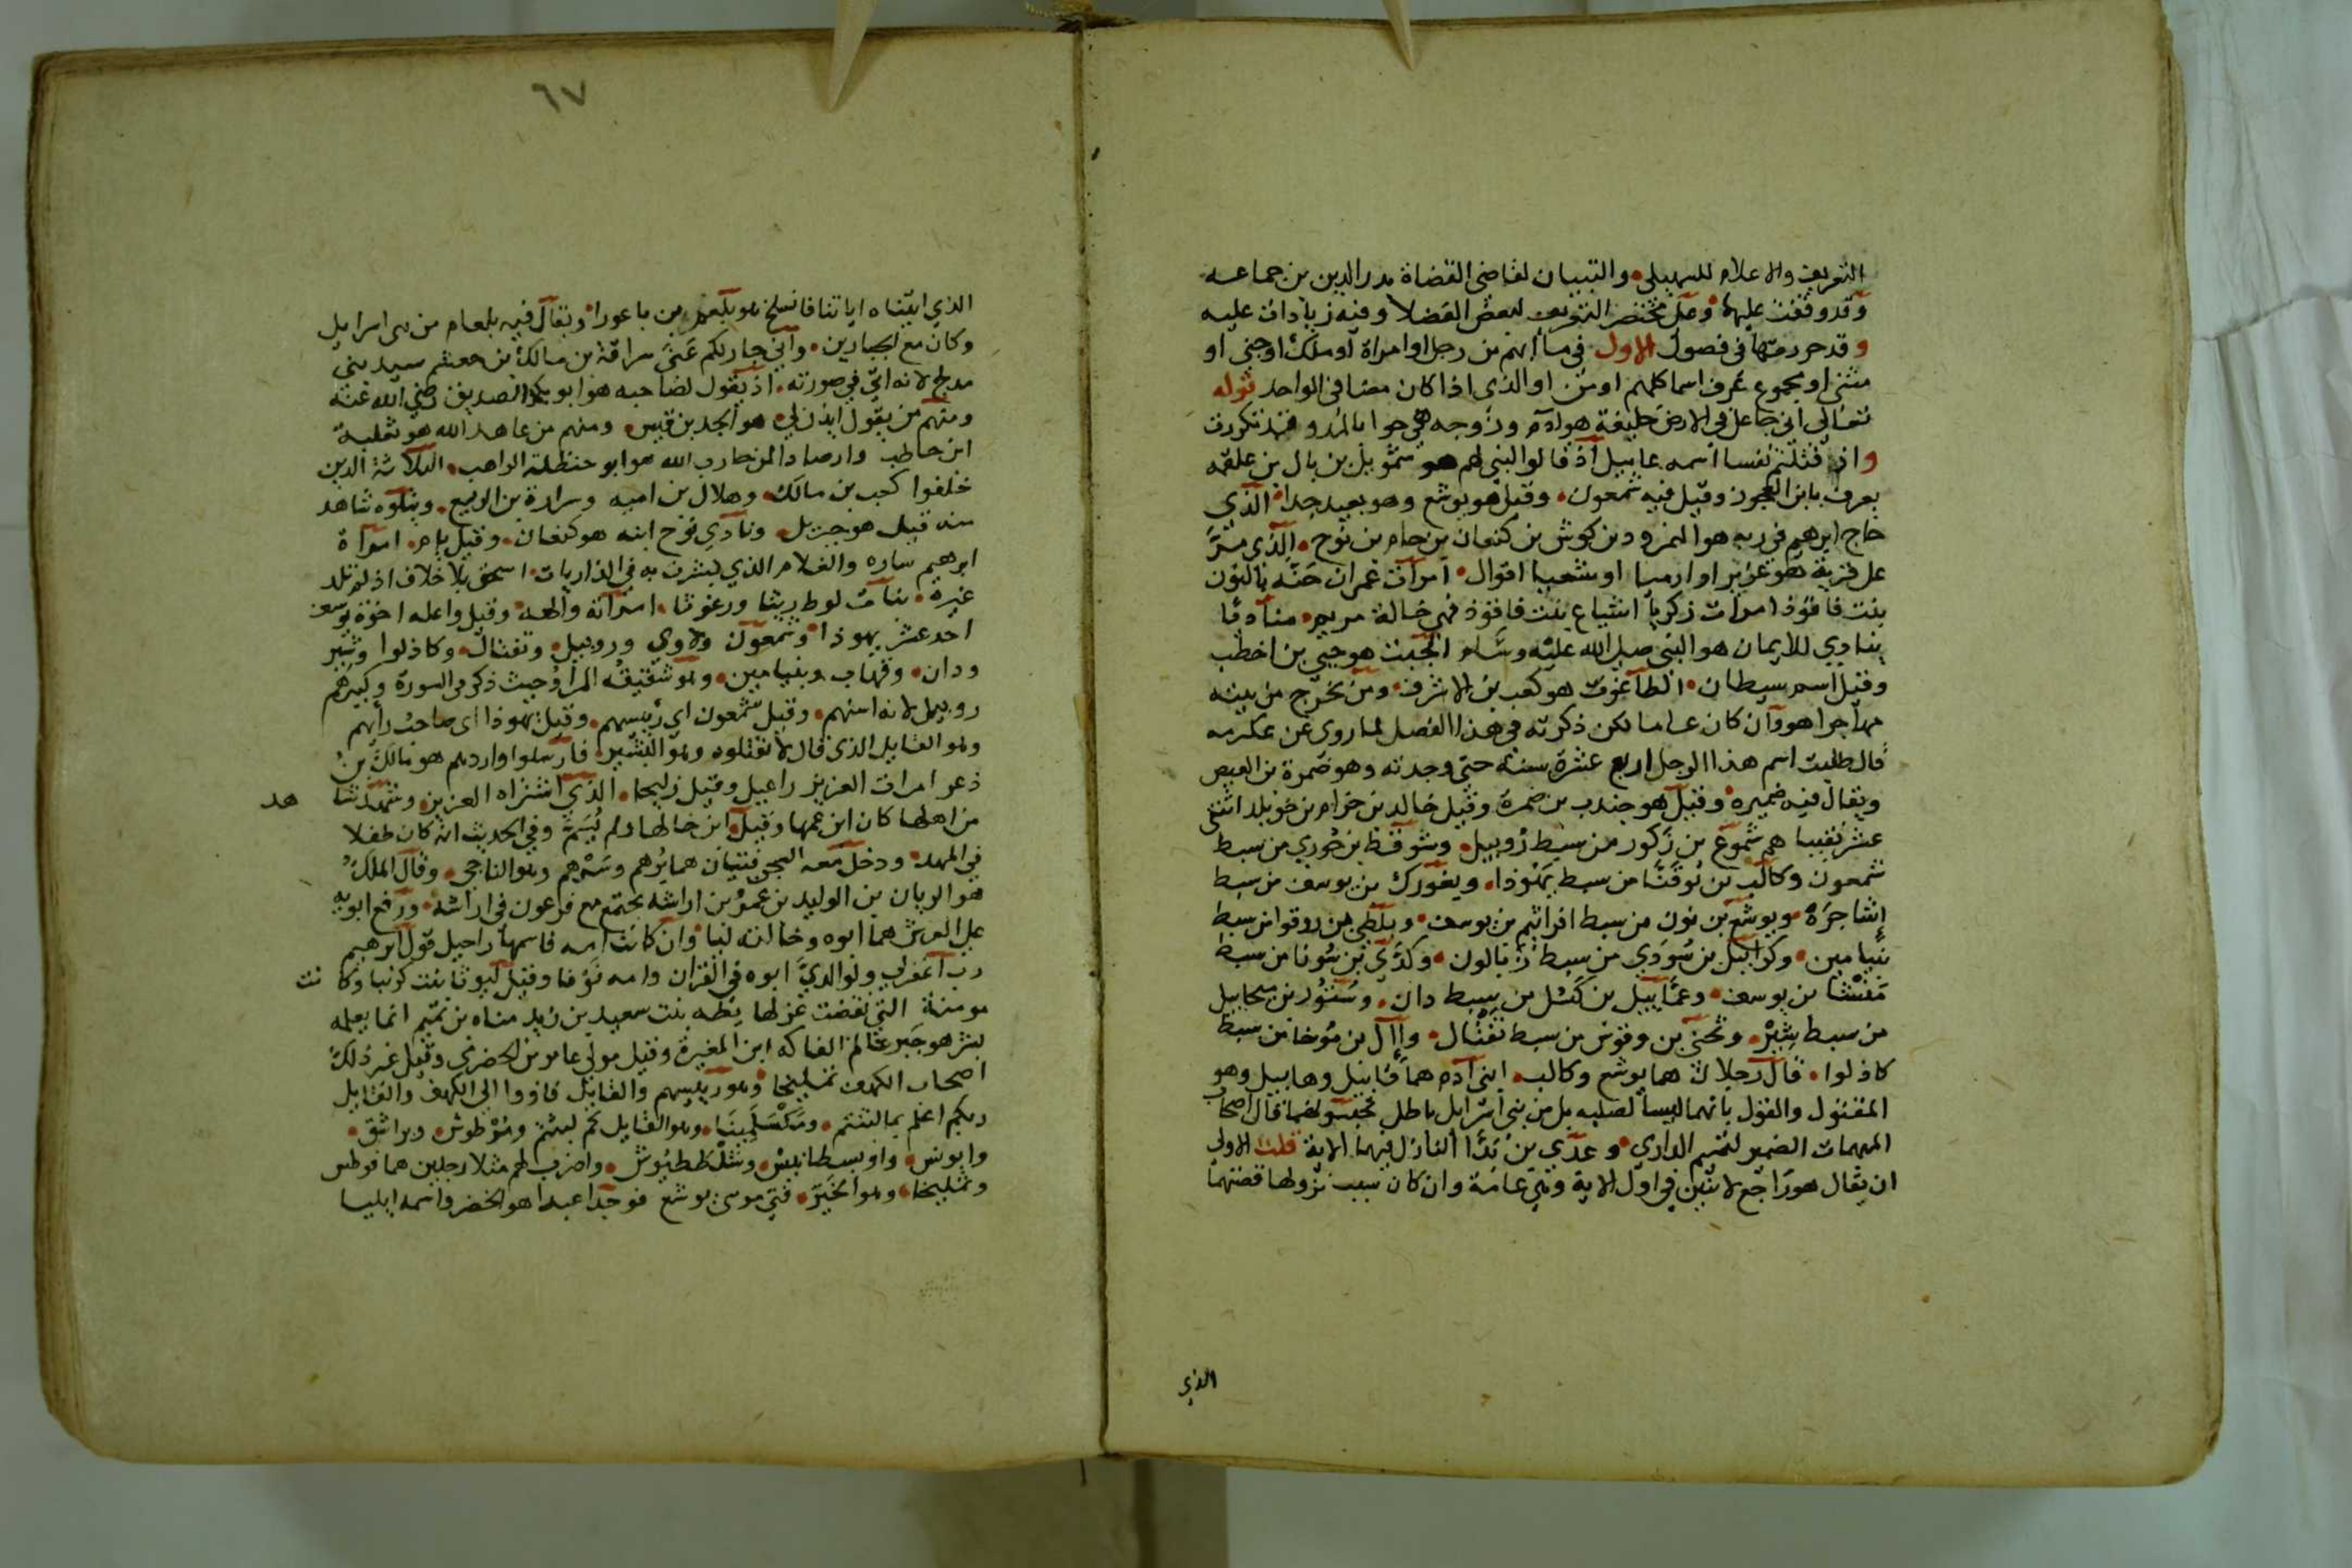 التعريف والاعلام للسهيلى والتبيان لقاضى القضاة بدر الدين بن جماعه
وقد وقفت عليها وعلى مختصر التعريف لبعض الفضلا وفيه زيادات عليه
وقد حررتها فى فصول الاول فى ما ابهم من رجل او امراة او ملك او جنى او
مثنى او مجموع عرف اسما كلهم او من او الذى اذا كان مضافى الواحد قوله
تعالى انى جاعل فى الارض خليفة هو ادم وزوجه هى حوا بالمد و قد تكررت
واذ قتلتم نفسا اسمه عاييل اذ قالوا لنبى لهم هو شمويل بن بال بن علقمه
يعرف بابن العجوز وقيل فيه شمعون وقيل هو يوشع وهو بعيد جدا الذى
حاج ابرهيم فى ربه هو النمرود بن كوش بن كنعان بن حام بن نوح الذى مر
على قرية هو عزير او ارميا او شعيا اقوال امرات عمران حنه بالنون
بنت فاقوذ امرات زكريا اشياع بنت فاقوذ فهى خالة مريم مناديا
ينادي للايمان هو النبى صلى الله عليه وسلم الجبت هو حيى بن اخطب
وقيل اسم سيطان الطاغوت هو كعب بن الاشرف ومن يخرج من بيته
مهاجرا هو وان كان عاما لكن ذكرته فى هذا الفصل لما روى عن عكرمه
قال طلبت اسم هذا الرجل اربع عشرة سنة حتى وجدته وهو ضمرة بن العيص
ويقال فيه ضميره وقيل هو جندب بن ضمرة وقيل خالد بن حزام بن خويلد اثنى
عشر نقيبا هم شموع بن زكور من سبط روبيل وشوقط بن حوري من سبط
شمعون وكالب بن يوفنا من سبط يهوذا ويغورك بن يوسف من سبط
إشاجرة ويوشع بن نون من سبط افراثيم بن يوسف وبلطى بن روقوا من سبط
بنيامين وكرابيل بن سودى من سبط زبالون وكدى بن سوشا من سبط
منشا بن يوسف وعماييل بن كسل من سبط دان وستور بن ميخاييل
من سبط يشير ويحنى بن وقوس من سبط نفتال وإال بن موخا من سبط
كاذلوا قال رجلان هما يوشع وكالب ابنى ادم هما قابيل وهابيل وهو
المقتول والقول بانهما ليسا لصلبه بل من بنى اسرايل باطل تحبسونهما قال اصحاب
المبهمات الضمير لتميم الدارى وعدي بن بدا النازل فيهما الاية قلت الاولى
ان يقال هو راجع لاثنين فى اول الاية وهى عامة وان كان سبب نزولها قصتهما
الذى
٦٧
الذي اتيناه اياتنا فانسلخ هو بلعم بن باعورا ويقال فيه بلعام من بنى اسرايل
وكان مع الجبارين وانى جار لكم عنى سراقة بن مالك بن جعشم سيد بنى
مدلج لانه اتى في صورته اذ يقول لصاحبه هو ابو بكر الصديق رضى الله عنه
ومنهم من يقول ايذن لي هو الجد بن قيس ومنهم من عاهد الله هو ثعلبة
ابن حاطب وارصادا لمن حارب الله هو ابو حنظلة الراهب الثلاثة الذين
خلفوا كعب بن مالك وهلال بن اميه ومرارة بن الربيع ويتلوه شاهد
منه قيل هو جبريل ونادي نوح ابنه هو كنعان وقيل يام امراة
ابرهيم ساره والغلام الذي بشرت به في الذاريات اسحق بلا خلاف اذ لم تلد
غيره بنات لوط ريثا ورغوثا امراته والهه وقيل واعله اخوة يوسف
احد عشر يهوذا وشمعون ولاوى وروبيل ونفتال وكاذلوا ويشير
ودان وقهاب وبنيامين وهو شقيقه المراد حيث ذكر فى السورة وكبيرهم
روبيل لانه اسنهم وقيل شمعون اي رئيسهم وقيل يهوذا اى صاحب رأيهم
وهو القايل الذى قال لا تقتلوه وهو البشير فارسلوا واردهم هو مالك بن
ذعر امرات العزيز راعيل وقيل زليخا الذي اشتراه العزيز وشهد شا هد
من اهلها كان ابن عمها وقيل ابن خالها ولم يُسَمَّ وفي الحديث انه كان طفلا
فى المهد ودخل معه السجن فتيان هما يرهم وسرهم وهو الناجى وقال الملك
هو الريان بن الوليد بن عمرو بن اراشه يجتمع مع فرعون فى اراشه ورفع ابويه
على العرش هما ابوه وخالته ليا وان كانت امه فاسمها راحيل قول ابرهيم
رب اغفر لي ولوالديَّ ابوه فى القران وامه نوفا وقيل ليوثا بنت كرنبا وكا نت
مومنة التى نقضت غزلها ريطه بنت سعيد بن زيد مناه بن تميم انما يعلمه
بشر هو جبر غلام الفاكه ابن المغيرة وقيل مولى عامر بن الحضرمي وقيل غير ذلك
اصحاب الكهف تمليخا وهو رييسهم والقايل فاووا الى الكهف والقايل
ربكم اعلم بما لبثتم ومكسلمينا وهو القايل كم لبثتم ومرطوش وبراشق
وايونس واوبسطانيس وشلططيوش واضرب لهم مثلا رجلين هما فوطس
وتمليخا وهو الخير فتي موسى يوشع فوجدا عبدا هو الخضر واسمه ايليسا